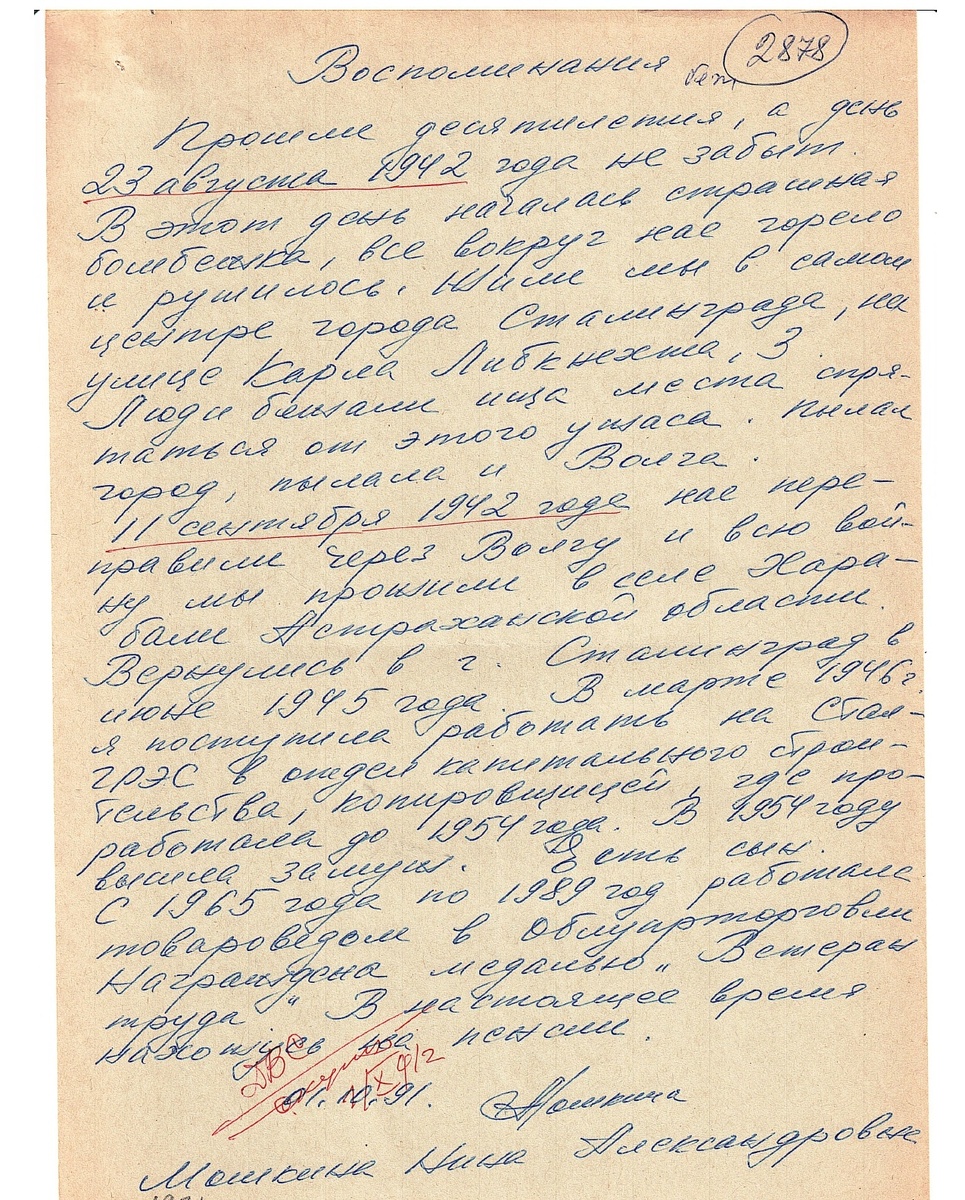 2878
Воспоминания
Прошли десятилетия, а день
23 августа 1942 года не забыт.
В этот день началась страшная
бомбежка, все вокруг нас горело
и рушилось. Жили мы в самом
центре города Сталинграда, на
улице Карла Либкнехта, 3.
Люди бежали ища места спря-
таться от этого ужаса. Пылал
город, пылала и Волга.
11 сентября 1942 года нас пере-
правили через Волгу и всю вой-
ну мы прожили в селе Хара-
бали Астраханской области.
Вернулись в г. Сталинград в
июне 1945 года. В марте 1946 г.
я поступила работать на Стал-
ГРЭС в отдел капитального строи-
тельства, копировщицей, где про-
работала до 1954 года. В 1954 году
вышла замуж. Есть сын.
С 1965 года по 1989 год работала
товароведом в Облупрторговли
Награждена медалью „Ветеран
труда“ В настоящее время
нахожусь на пенсии.
ДВС
01.10.91. Мошкина
Мошкина Нина Александровна